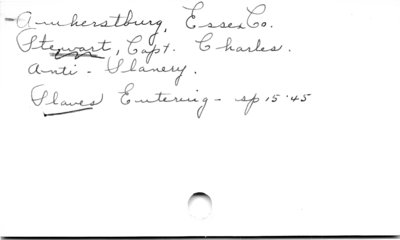 -Amherstburg, Essex Co.
Stewart, Capt. Charles.
Anti-Slavery.
Slaves Entering - sp 15.45